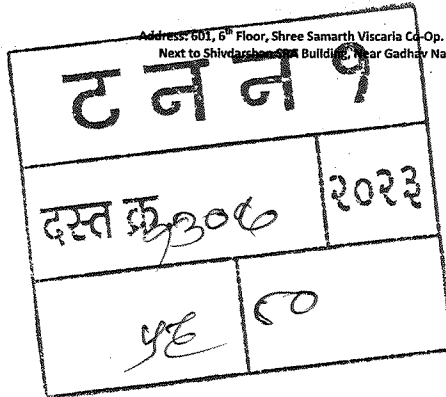 Address: 601, 6th Floor, Shree Samarth Viscaria Co-Op.
Next to Shivdarshan SRA Building, Near Gadhav Na
ट न न १
दस्त क्र. २०२३
५६ ८०